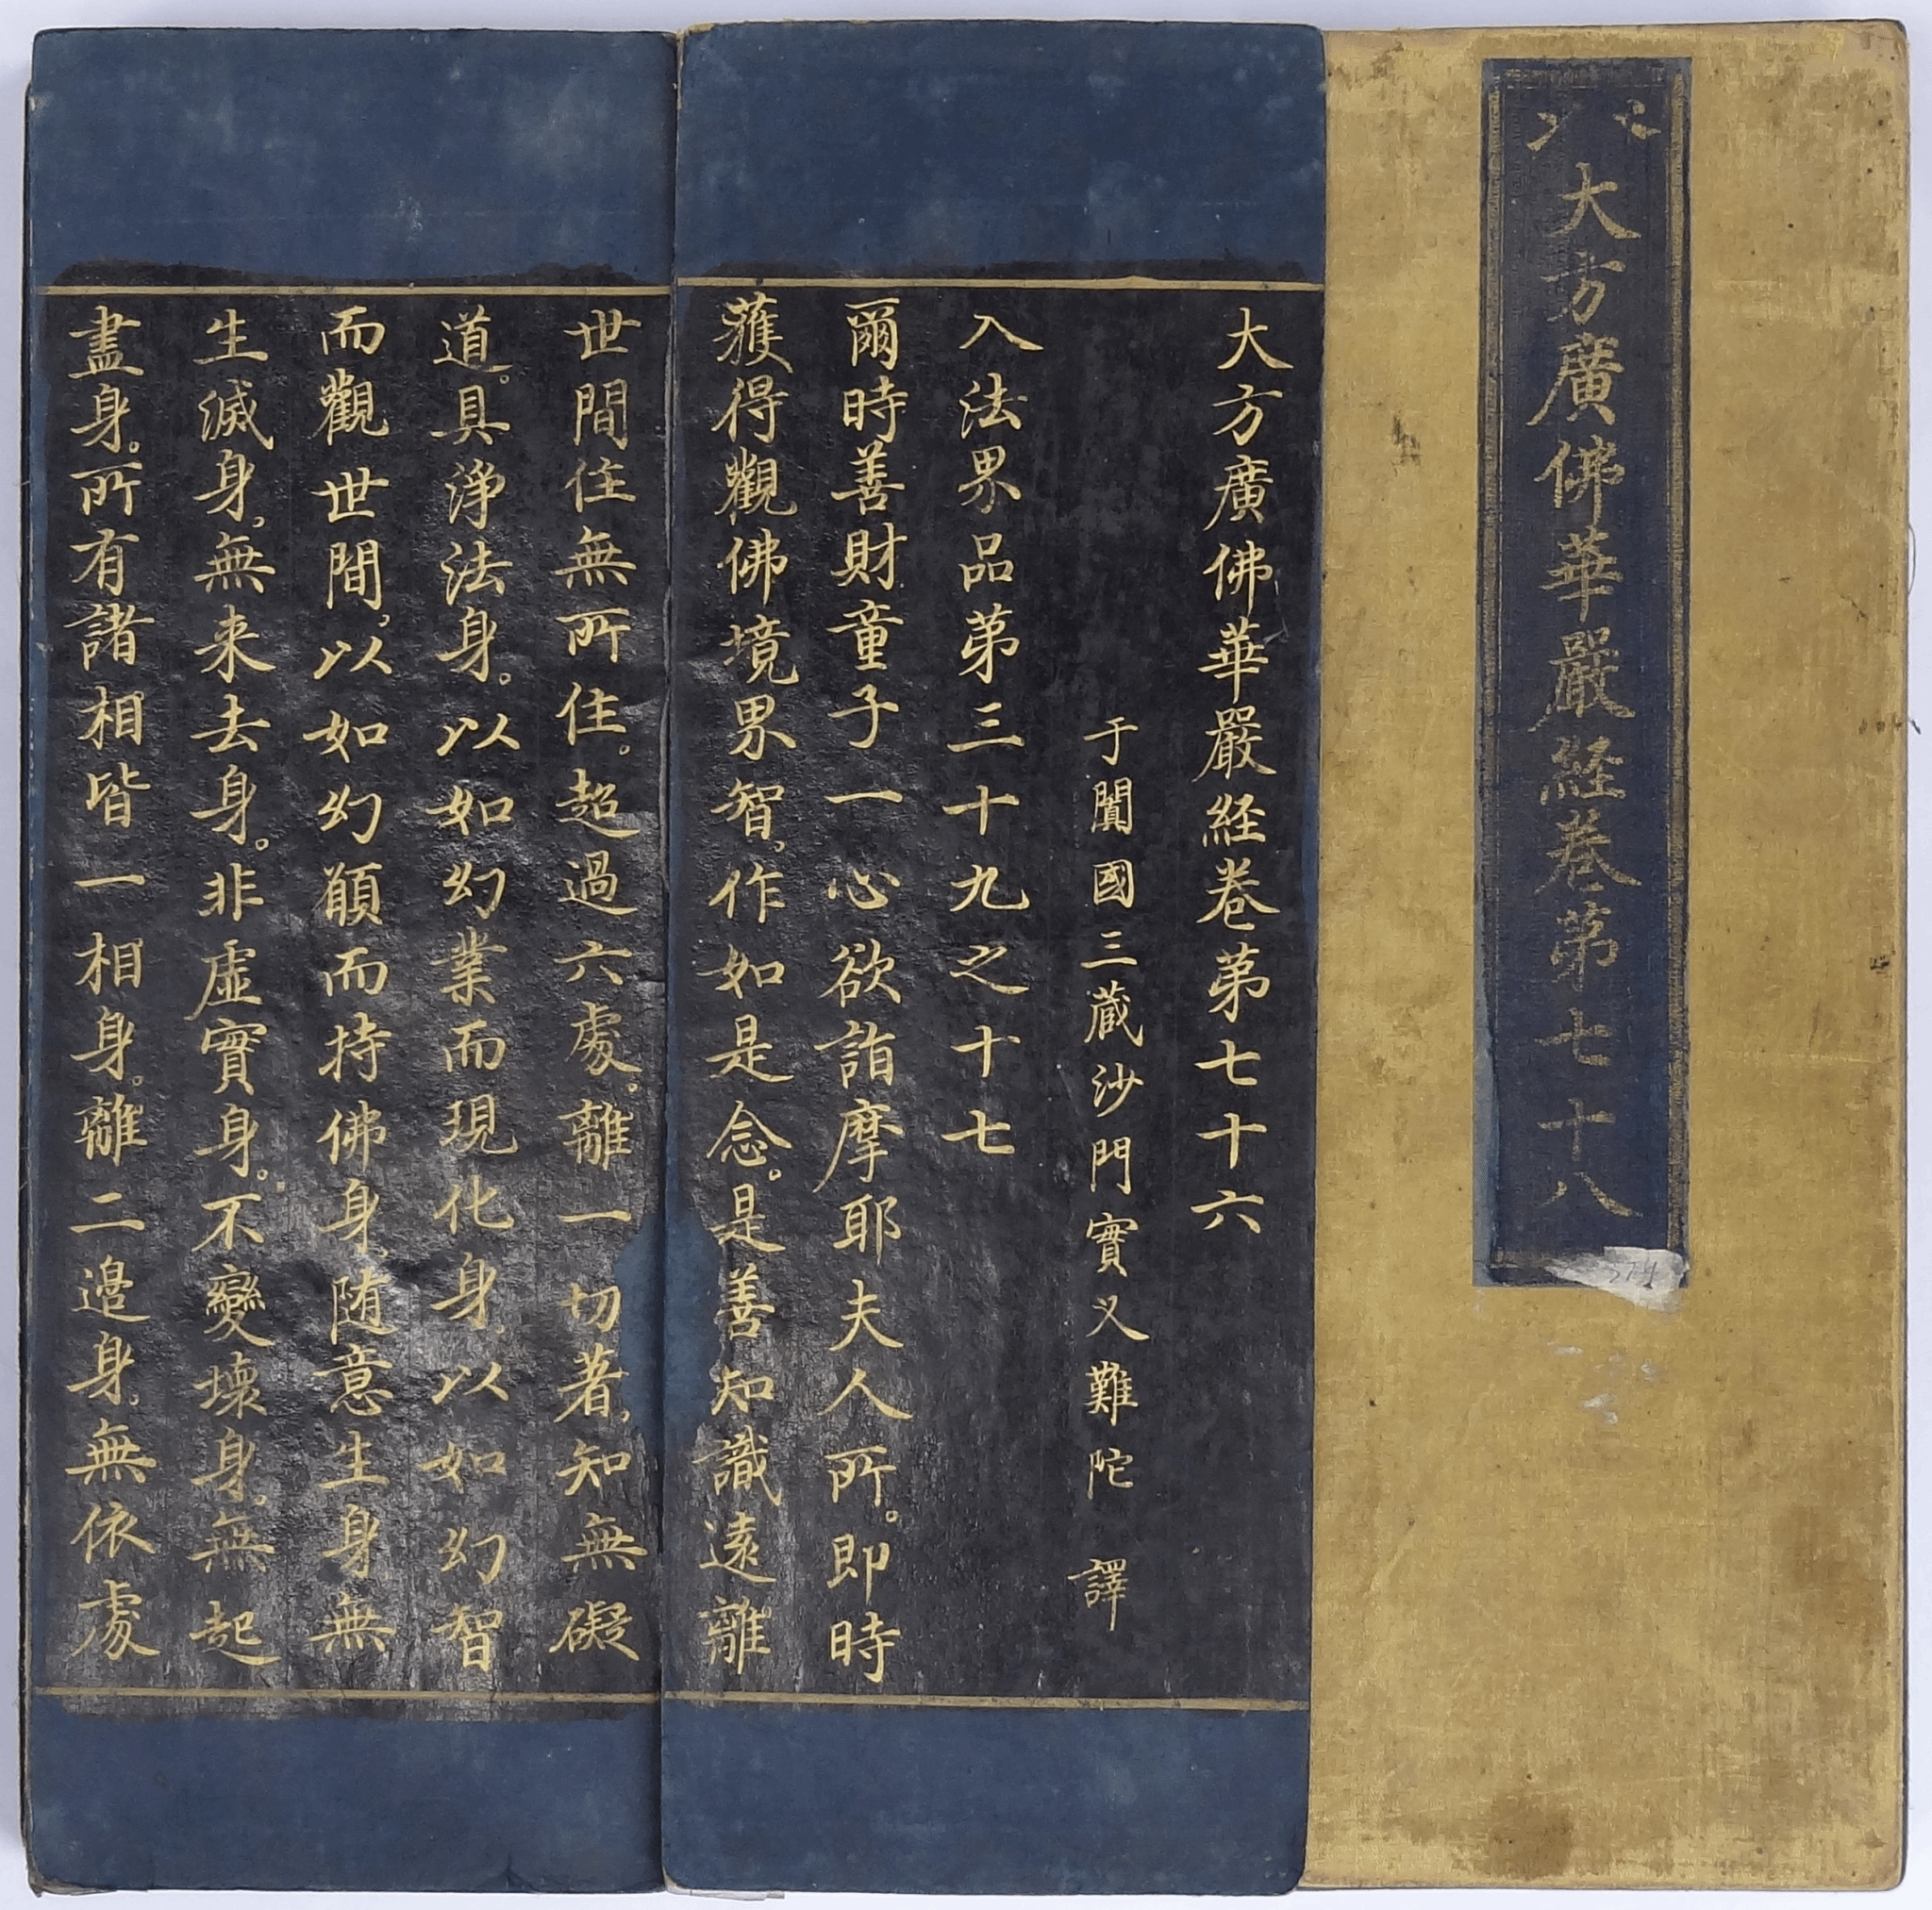 大方廣佛華嚴経卷第七十八
大方廣佛華嚴経卷第七十六
于闐國三蔵沙門實叉難陀 譯
入法界品第三十九之十七
爾時善財童子一心欲詣摩耶夫人所。即時
獲得觀佛境界智，作如是念。是善知識遠離
世間住無所住。超過六處。離一切著，知無礙
道。具淨法身。以如幻業而現化身，以如幻智
而觀世間。以如幻願而持佛身，随意生身，無
生滅身，無来去身。非虛實身。不變壞身。無起
盡身。所有諸相皆一相身。離二邊身。無依處